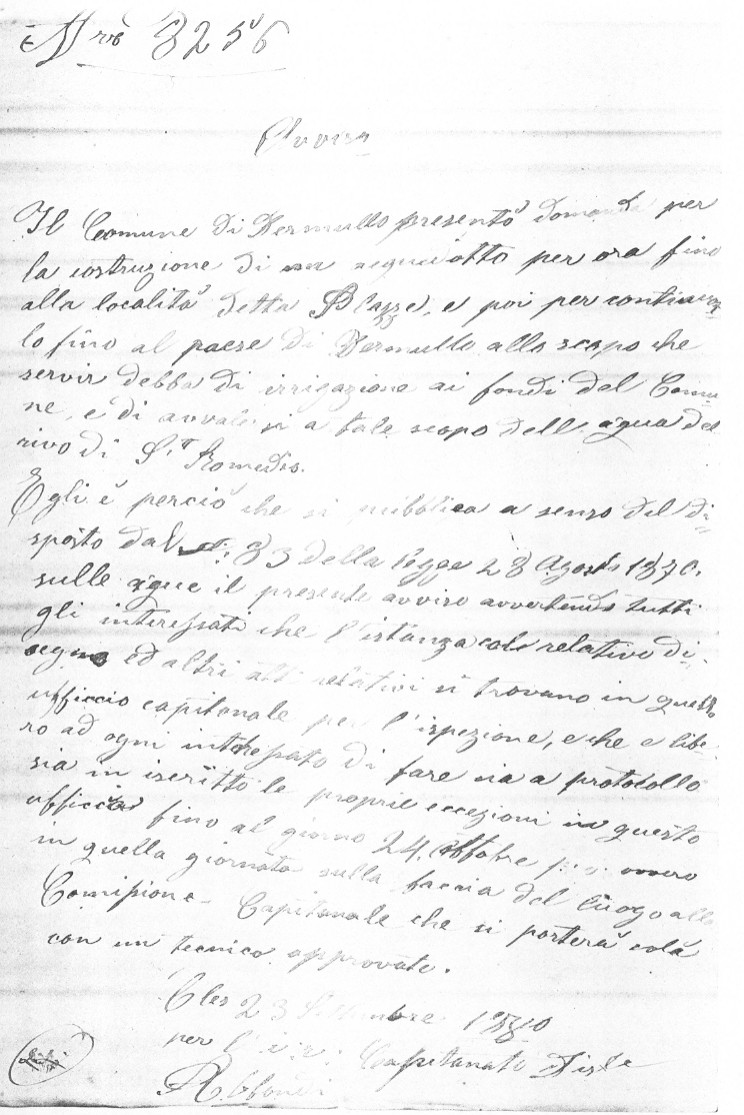 Nro 8256
Avviso
Il Comune di Dermullo presentò domanda per
la costruzione di un acquedotto per ora fino
alla località detta Plazze, e poi per continuar=
lo fino al paese di Dermullo allo scopo che
servir debba di irrigazione ai fondi del Comu
ne, e di avvalersi a tale scopo dell'aqua del
rivo di St. Romedio.
Egli è perciò che si pubblica a senso del di=
sposto dal §: 83 della legge 28 Agosto 1870.
sulle aque il presente avviso avvertendo tutti
gli interessati che l'istanza col relativo di=
segno ed altri atti relativi si trovano in questo
ufficcio capitanale per l'ispezione, e che e libe
ro ad ogni interessato di fare sia a protocollo
sia in iscritto le proprie eccezioni in questo
ufficcio fino al giorno 24. Ottobre ovvero
in quella giornata sulla faccia del luogo alla
Comissione Capitanale che si porterà colà
con un tecnico approvato.
Cles 23 Settembre 1880
per l'i. r. Capitanato Diste